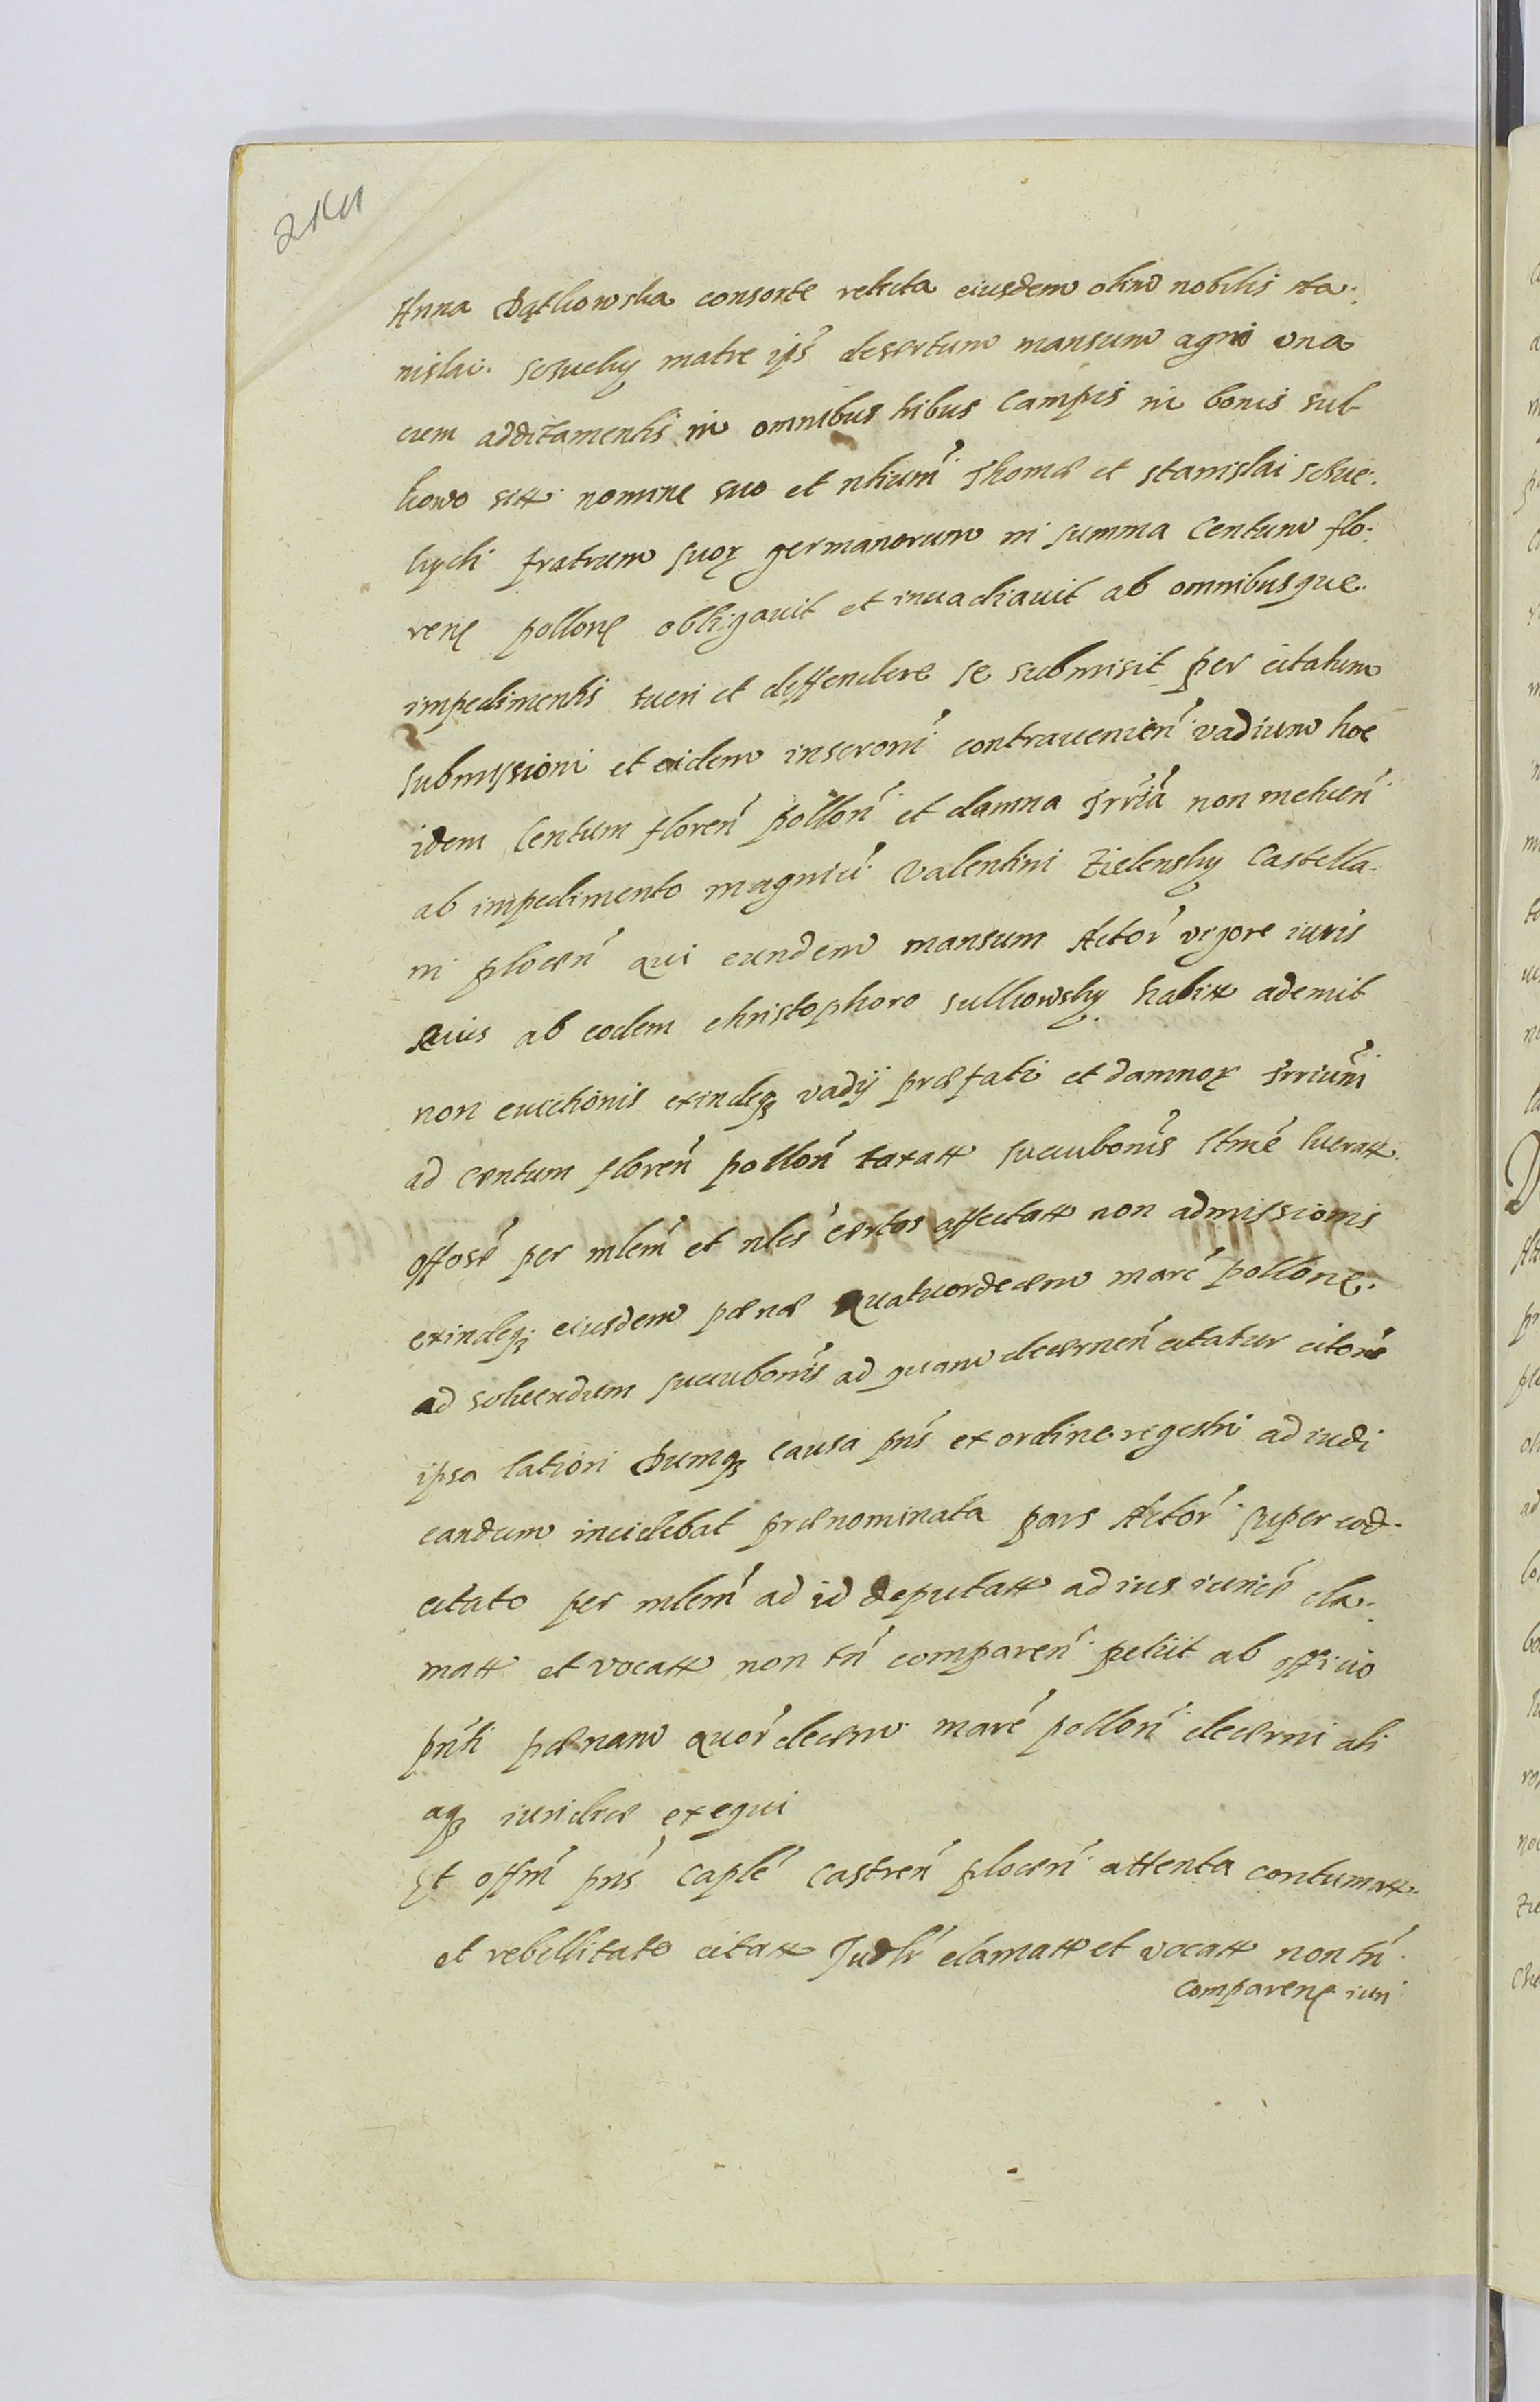 Anna Bątkowska consorte relicta eiusdem olim nobilis Sta:
nislai matre ips desertum mansum agri una
cum additamentis in omnibus tribus campis in bonis sul
kowo sitt nomine suo et nlium Thomæ et Stanislai
fratrum suoꝝ germanorum in summa Centum flo:
renę pollonę obligavit et inuadiauit ab omnibusque
impedimentis tueri et deffendere se submisit per citatum
submissioni et eidem inseroni contravenien vadium hoc
idem Centum floren pollon et damna trria non metuen
ab impedimento magnici Valentini Zielensky Castella
ni plocen qui eundem mansum Actor vigore iuris
suis ab eodem Christophoro sulkowsky habitt ademit
non evictionis exindeqꝫ vadij præfati et damnoꝝ trrium
ad centum floren pollon taxatt succubonis ltme lueratt
offose per mlem et nles certos affectatt non admissionis
exindeqꝫ eiusdem pænæ quatuordecem marc pollonę
ad soluendum succubonis ad quam decernen citatur citone
ipsa latiori Dumqꝫ causa pns ex ordine regestri ad iudi
candum incidebat prænominata pars Actor super eod
citato per mlem ad id deputatt ad ius iurice cla:
matt et vocatt non tn comparen petiit ab officio
pnti pænam quor decem marc pollon decerni ali
aqꝫ iuridice exequi
Et offm pns caple castren plocen attenta contumatt
et rebellitate citatt Judlr clamatt et vocatt non tn
comparenę iuri